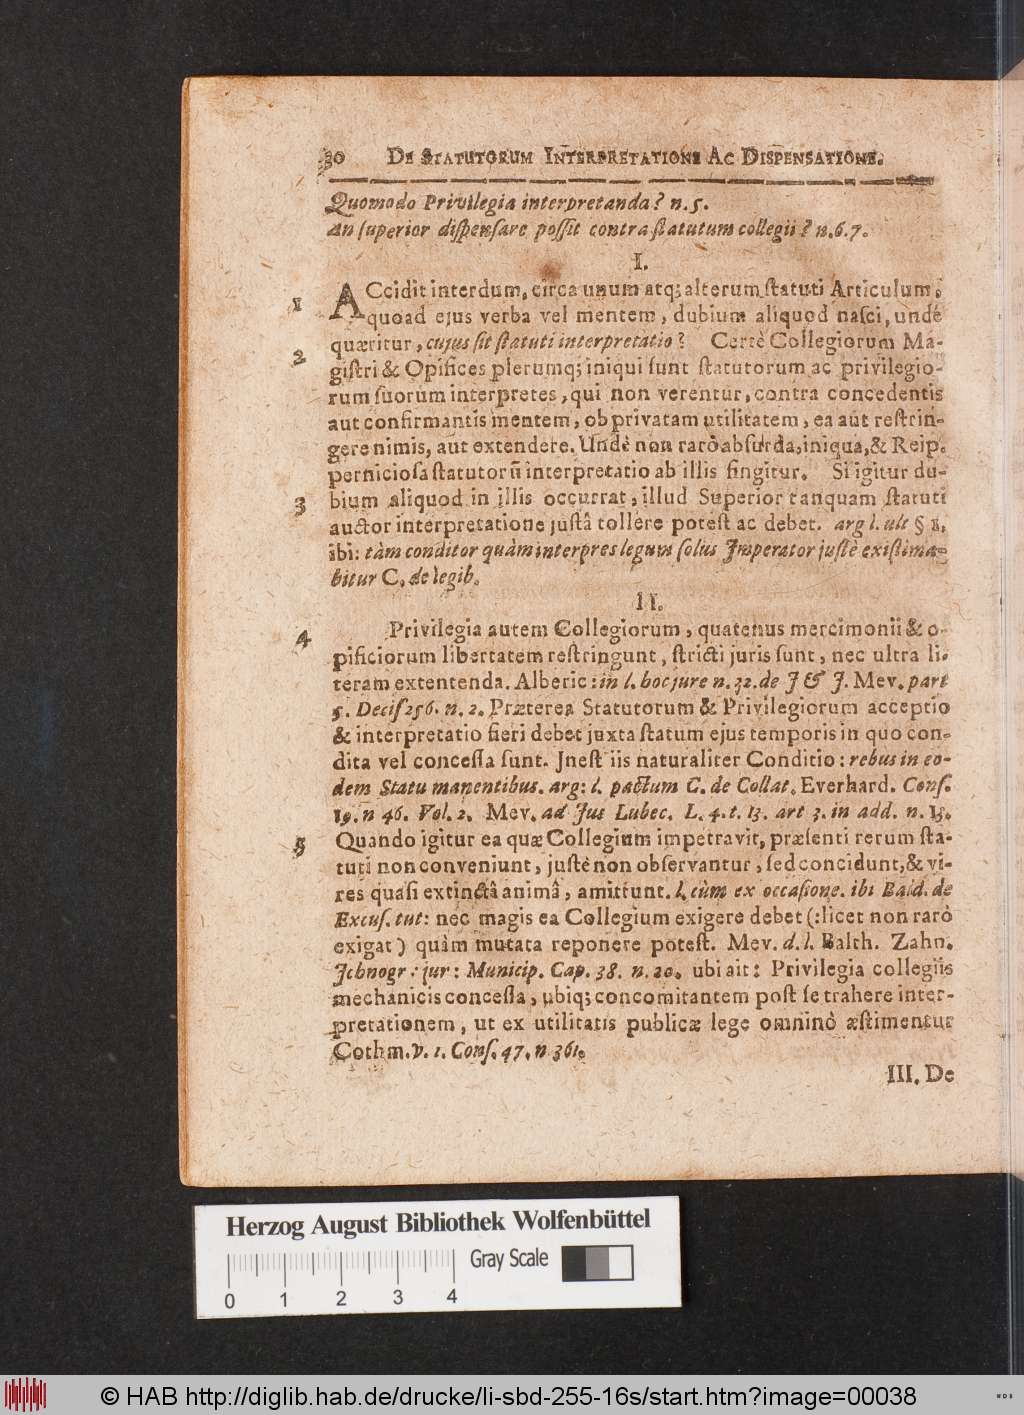 30 DE STATUTORUM INTERPRETATIONE AC DISPENSATIONE.
Quomodo Privilegia interpretanda? n. 5.
An ſuperior diſpenſare poſſit contra ſtatutum collegii? n. 6. 7.
I.
1 ACcidit interdum, circa unum atq; alterum ſtatuti Articulum,
quoad ejus verba vel mentem, dubium aliquod naſci, undè
2 quæritur, cujus ſit ſtatuti interpretatio? Certè Collegiorum Ma-
giſtri & Opifices plerumq; iniqui ſunt ſtatutorum ac privilegio-
rum ſuorum interpretes, qui non verentur, contra concedentis
aut confirmantis mentem, ob privatam utilitatem, ea aut reſtrin-
gere nimis, aut extendere. Undè non rarò abſurda, iniqua, & Reip.
pernicioſa ſtatutorũ interpretatio ab illis fingitur. Si igitur du-
3 bium aliquod in illis occurrat, illud Superior tanquam ſtatuti
auctor interpretatione juſtâ tollere poteſt ac debet. arg l. ult § 1.
ibi: tàm conditor quàm interpres legum ſolus Imperator juſtè exiſtima-
bitur C. de legib.
II.
4 Privilegia autem Collegiorum, quatenus mercimonii & o-
pificiorum libertatem reſtringunt, ſtricti juris ſunt, nec ultra li-
teram extentenda. Alberic: in l. hoc jure n. 32. de J & J. Mev. part
5. Deciſ 256. n. 2. Præterea Statutorum & Privilegiorum acceptio
& interpretatio fieri debet juxta ſtatum ejus temporis in quo con-
dita vel conceſſa ſunt. Jneſt iis naturaliter Conditio: rebus in eo-
dem Statu manentibus. arg: l. pactum C. de Collat. Everhard. Conſ.
19. n 46. Vol. 2. Mev. ad Jus Lubec. L. 4. t. 13. art 3. in add. n. 15.
5 Quando igitur ea quæ Collegium impetravit, præſenti rerum ſta-
tuti non conveniunt, juſtè non obſervantur, ſed concidunt, & vi-
res quaſi extinctâ animâ, amittunt. l. cùm ex occaſione. ibi Bald. de
Excuſ. tut: nec magis ea Collegium exigere debet (: licet non rarò
exigat) quàm mutata reponere poteſt. Mev. d. l. Balth. Zahn.
Jchnogr: jur: Municip. Cap. 38. n. 20. ubi ait: Privilegia collegiis
mechanicis conceſſa, ubiq; concomitantem poſt ſe trahere inter-
pretationem, ut ex utilitatis publicæ lege omninò æſtimentur
Cothm. v. 1. Conſ. 47. n 361.
III. De
Herzog August Bibliothek Wolfenbüttel
Gray Scale
0 1 2 3 4
© HAB http://diglib.hab.de/drucke/li-sbd-255-16s/start.htm?image=00038